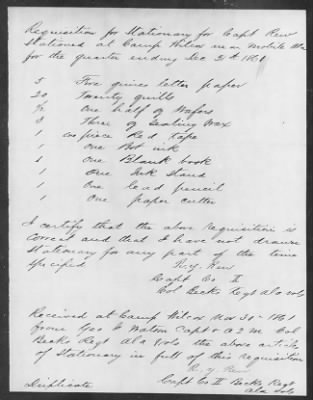 Requisition for Stationary for Capt Rew
Stationed at Camp Wilcox near Mobile Ala
for the quarter ending Dec 31st 1861
5 Five quires letter paper
20 Twenty quills
1/2 One half of Wafers
3 Three of Sealing Wax
1 piece Red Tape
1 One Bot ink
1 One Blank book
1 One Ink Stand
1 One lead pencil
1 One paper cutter
I certify that the above requisition is
Correct and that I have not drawn
Stationary for any part of the time
specified R. Y. Rew
Capt Co
Col Becks Regt Ala vols
Received at Camp Wilcox Nov 30 1861
from Geo Capt & A Q M Col
Becks Regt Ala Vols the above articles
of Stationary in full of this requisition
R. Y. Rew
Duplicate Capt Co Becks Regt
Ala Vols